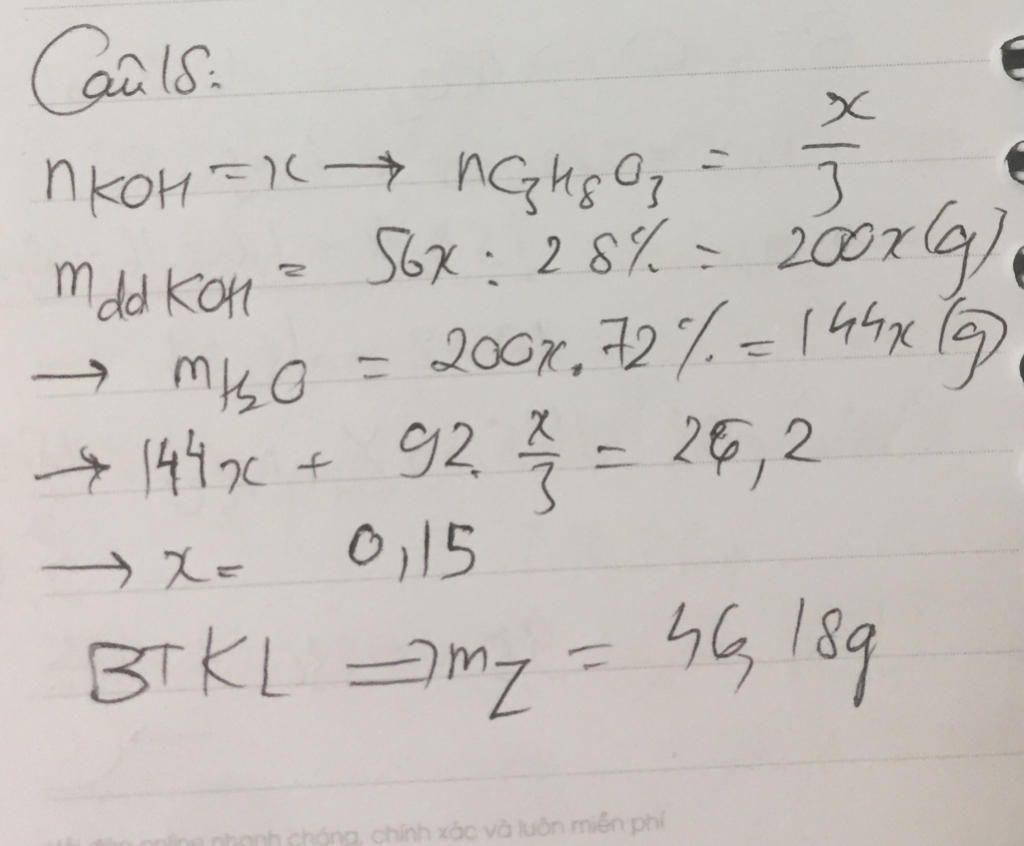 Câu 18:
nKOH = x → nC3H8O3 = x/3
mddKOH = 56x : 28% = 200x(g)
→ mH2O = 200x.72% = 144x(g)
→ 144x + 92. x/3 = 26,2
→ x = 0,15
BTKL ⇒ mZ = 46,18g
online nhanh chóng, chính xác và luôn miễn phí